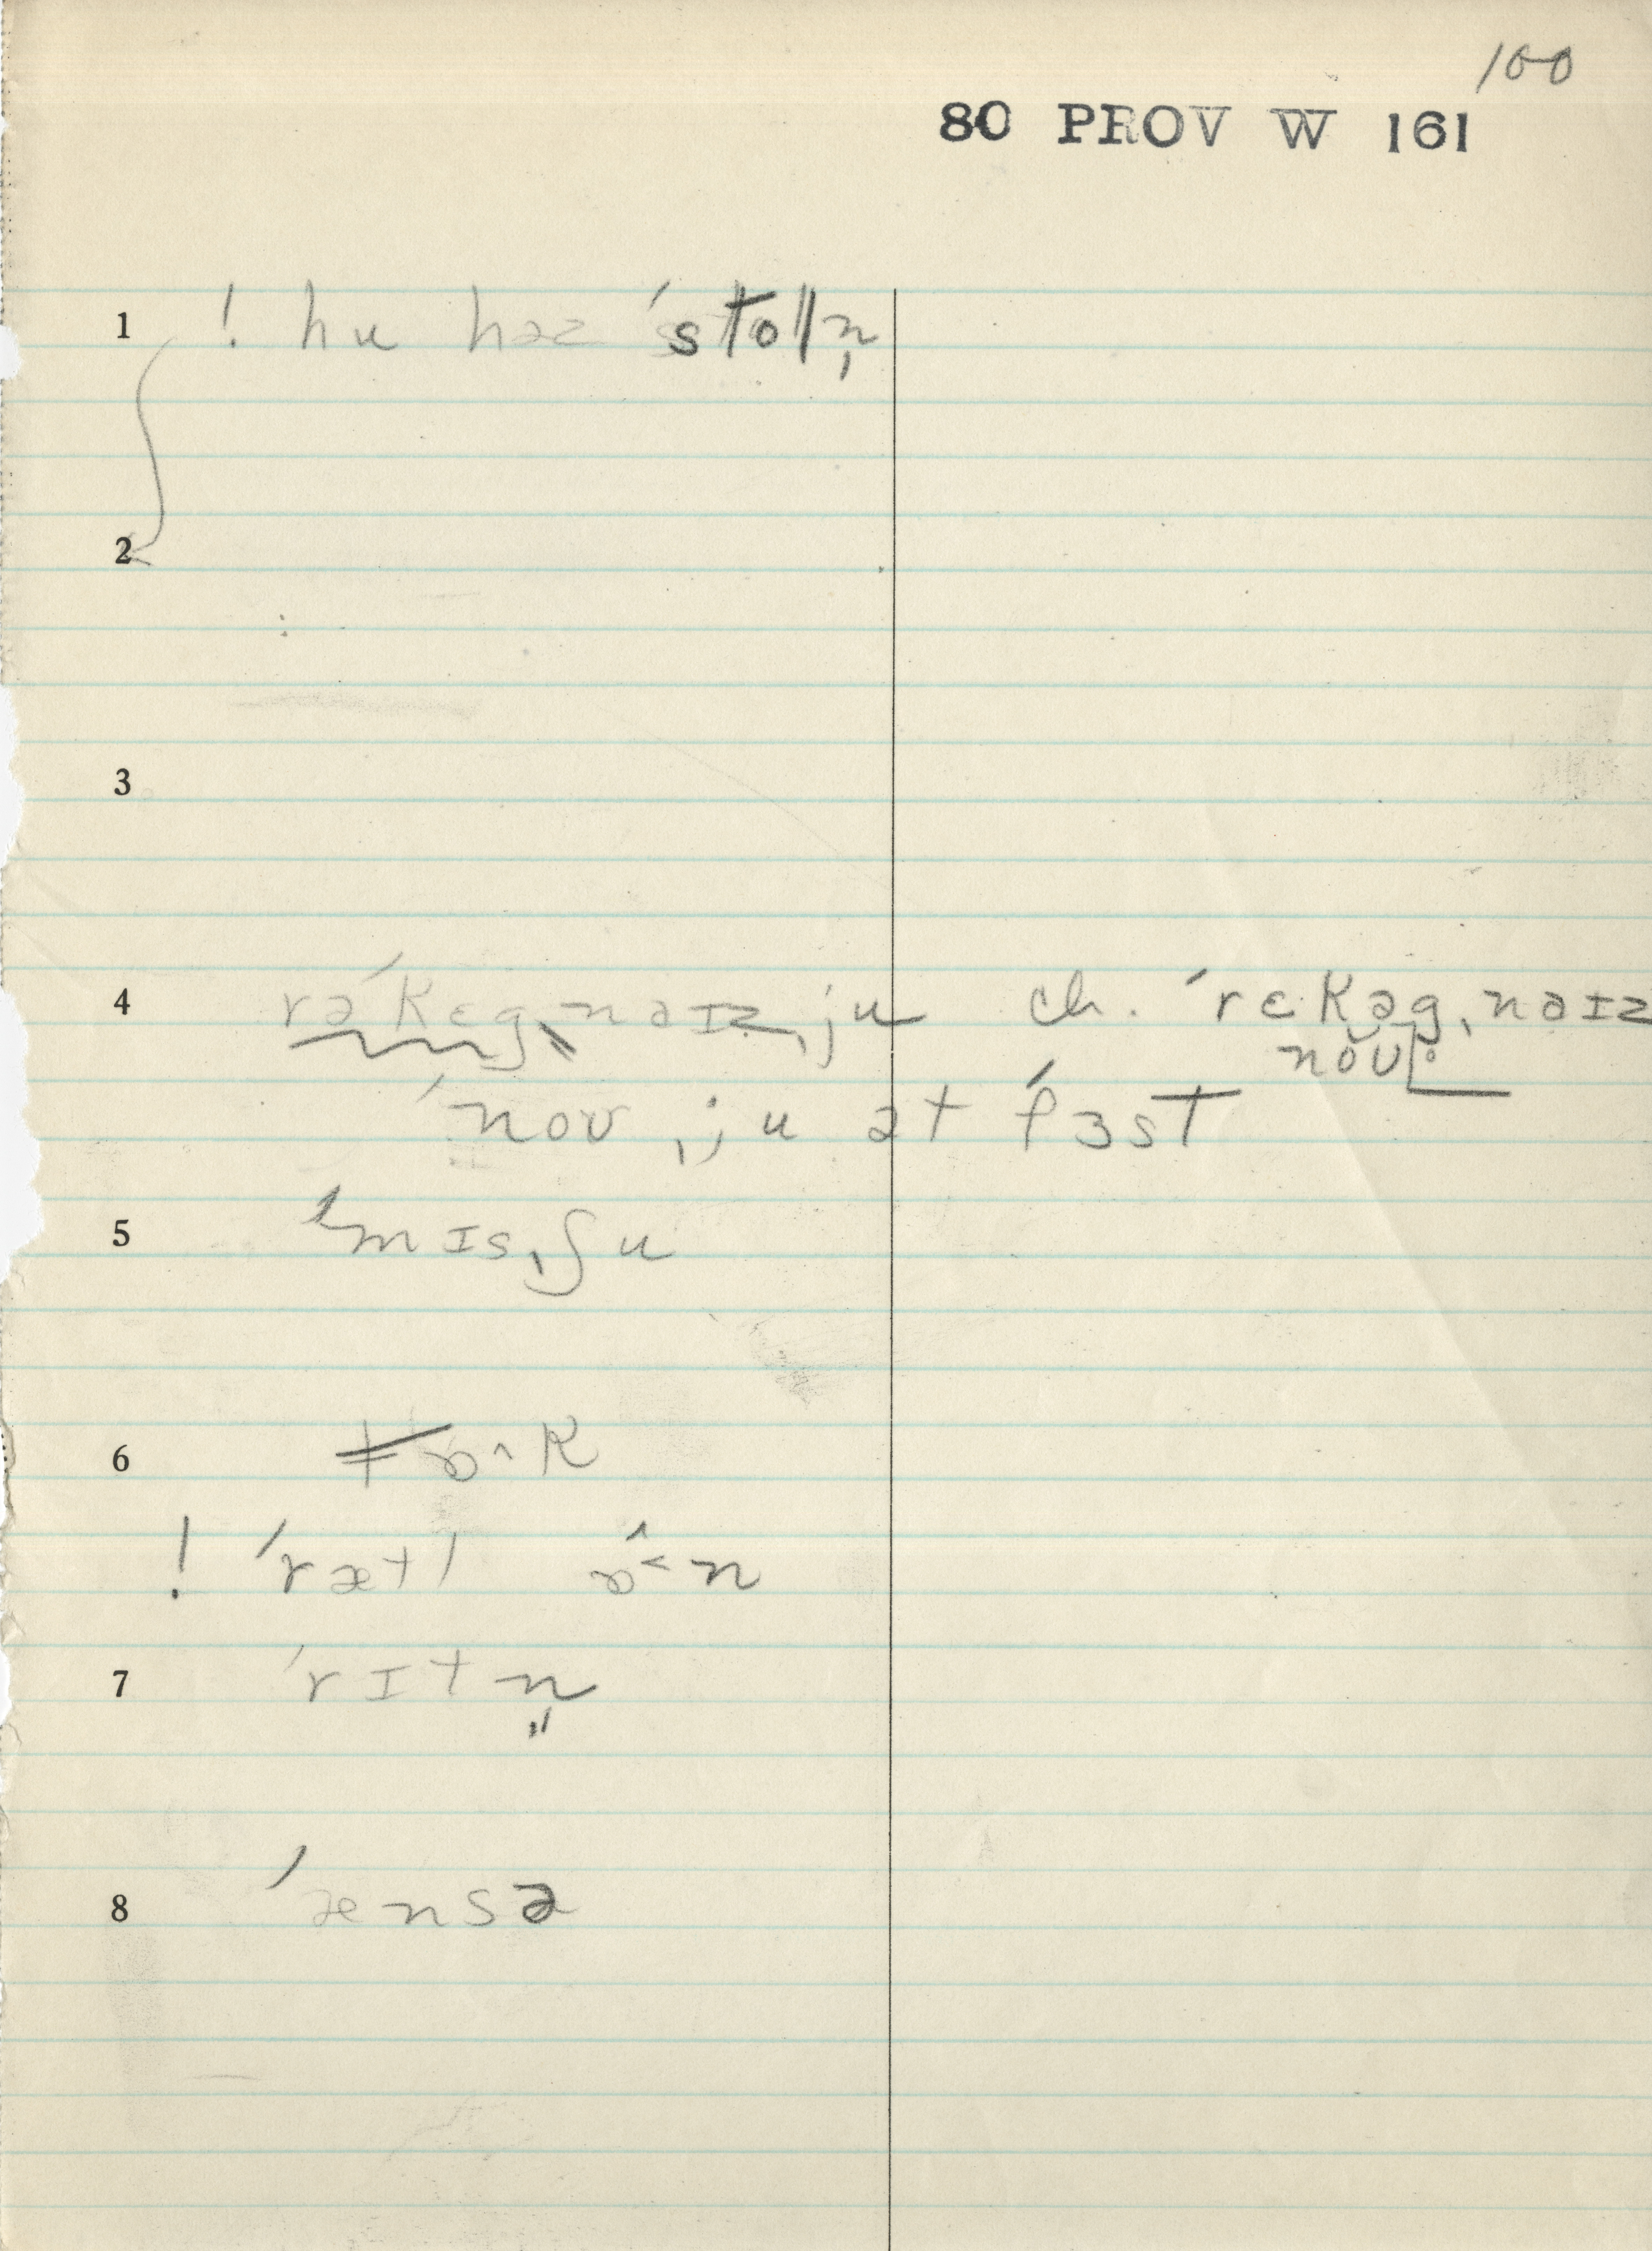 100
80 PROV W 161
1 ! hu həz ˈstoln̩
2
3
4 rəˈkɛgˌnaɪzˌju ch. ˈrɛkəgˌnaɪz
noʊ
ˈnoʊ ˌju ət ˈfɜst
5 ˈmɪsˌʃu
6 tɒ^k
! ˈrætl ɒ^<n
7 ˈrɪtn̩
8 ˈænsə